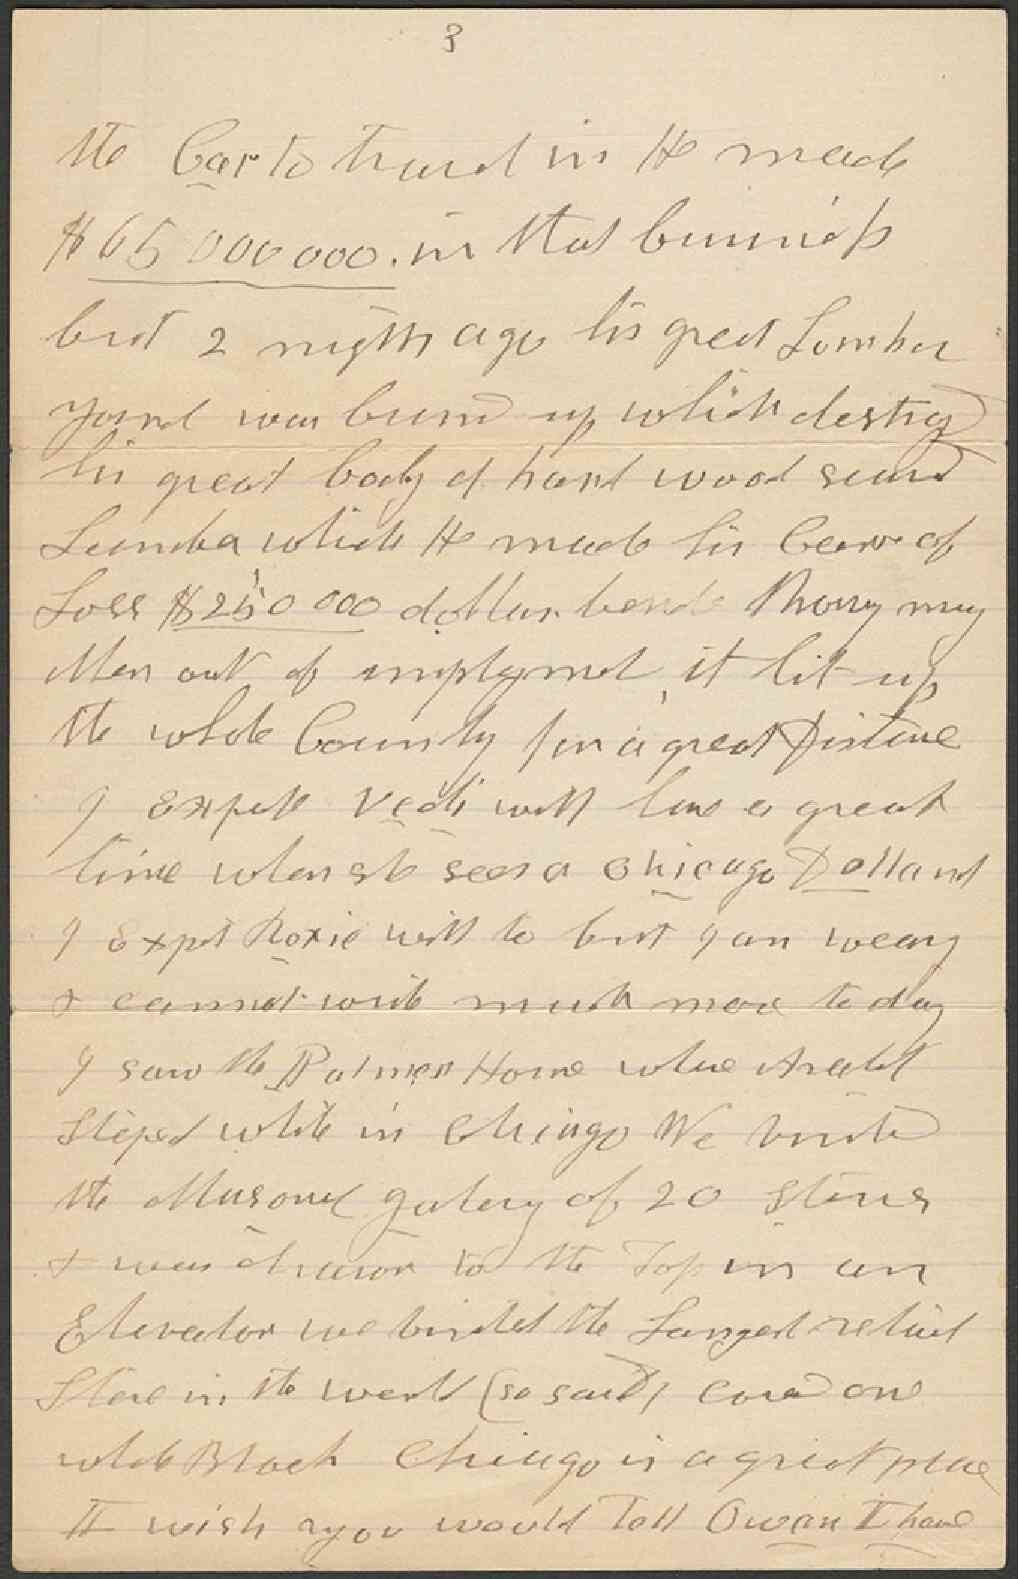 3
the Car to travel in He made
$65 000 000. in that buisness
but 2 nights ago his great Lumber
yard was burnd up which destroyed
his great body of hard wood
Lumber which He made his Cars of
Loss $250 000 dollars
Men out of employment it lit up
the whole County for a great Distance
I Expect will have a great
time when she sees a Chicago Doll and
I Expt Roxie will to but I am weary
& cannot write much more to day
I saw the Palmer House where
Stoped while in Chicago We visited
the Masonic of 20 Stories
& was drawn to the Top in an
Elevator we visited the Largest retail
Store in the world (so said) one
whole Block Chicago is a great place
I wish you would Tell Owen I have